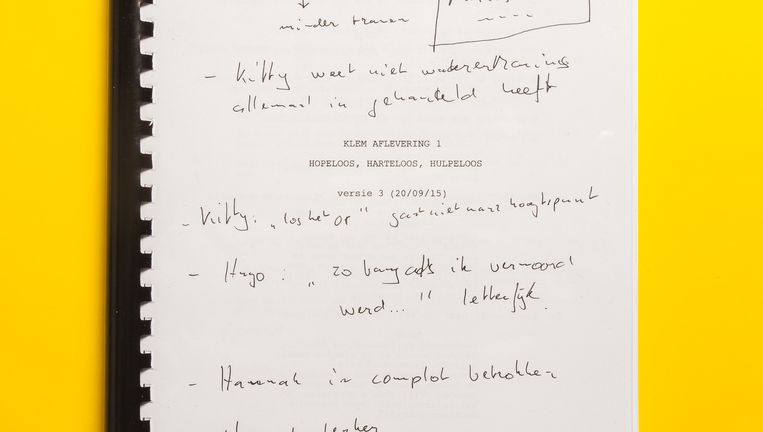 minder
- Kitty weet niet
allemaal in gehandeld heeft
KLEM AFLEVERING 1
HOPELOOS, HARTELOOS, HULPELOOS
versie 3 (20/09/15)
- Kitty: "los het op" gaat niet naar hoogtepunt
- Hugo: "zo bang als ik vermoord
werd..." letterlijk.
- Hannah in complot betrokken